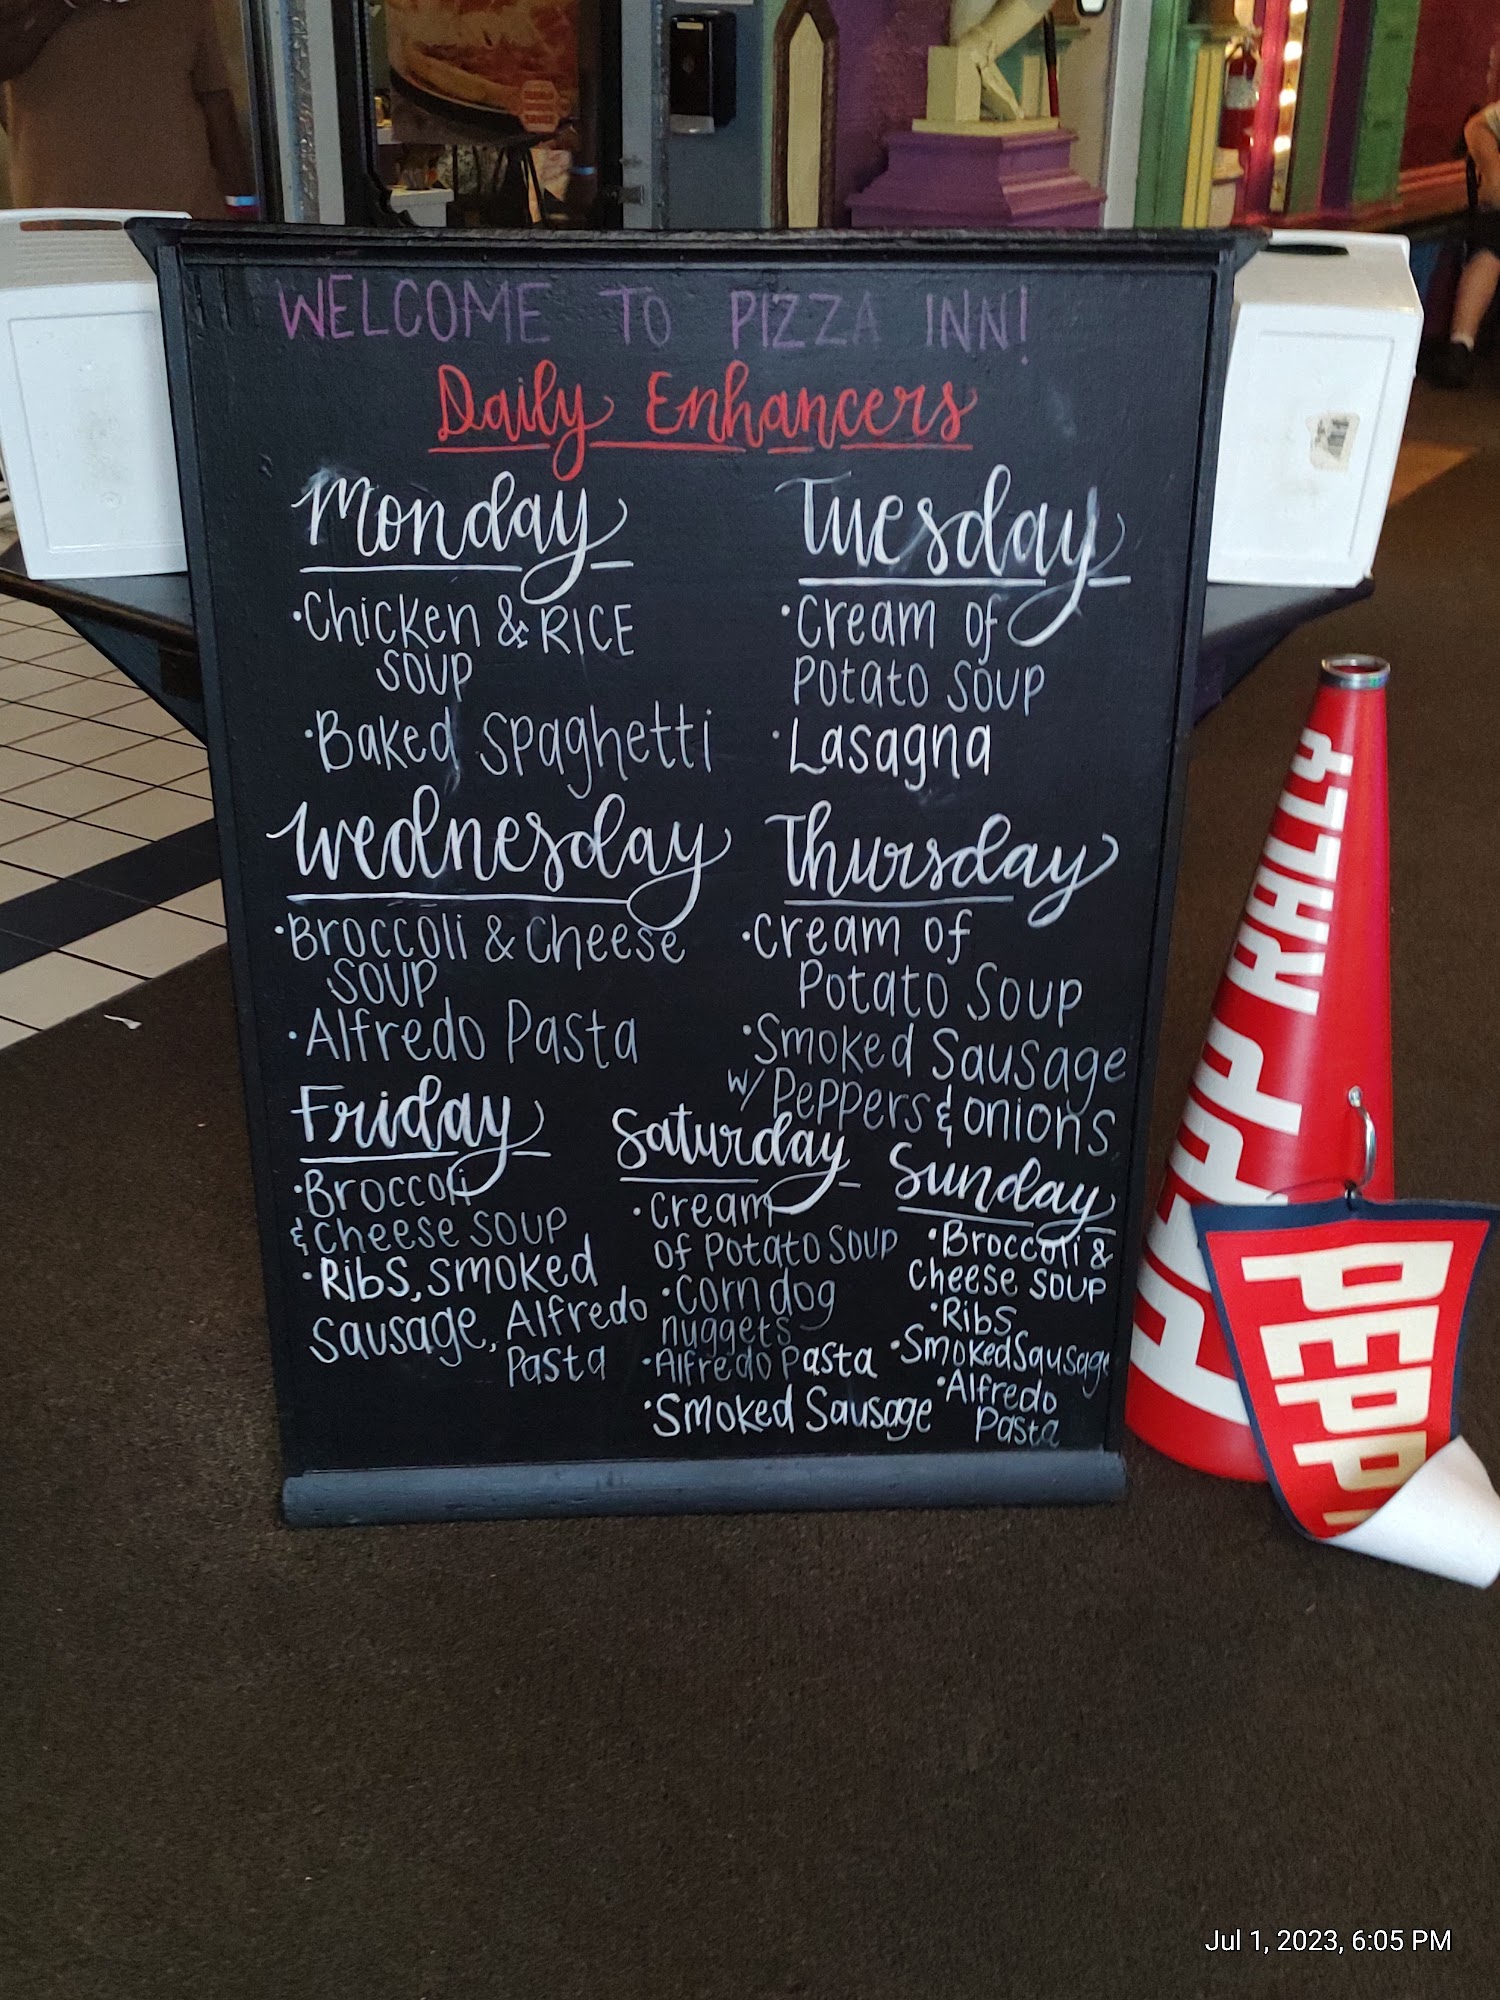 WELCOME TO PIZZA INN!
Daily Enhancers
Monday
•Chicken & RICE
SOUP
•Baked Spaghetti
Tuesday
•Cream of
Potato Soup
•Lasagna
Wednesday
•Broccoli & Cheese
SOUP
•Alfredo Pasta
Thursday
•Cream of
Potato Soup
•Smoked Sausage
w/ Peppers & onions
Friday
•Broccoli
& Cheese SOUP
•Ribs, smoked
Sausage, Alfredo
Pasta
Saturday
•Cream
of Potato Soup
•Corn dog
nuggets
•Alfredo Pasta
•Smoked Sausage
Sunday
•Broccoli &
Cheese SOUP
•Ribs
•Smoked Sausage
•Alfredo
Pasta
PEPP RALLY
PEPP
Jul 1, 2023, 6:05 PM